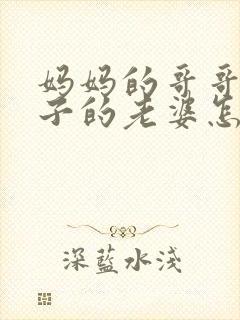 妈妈的哥哥
子的老婆怎
深藍水淺